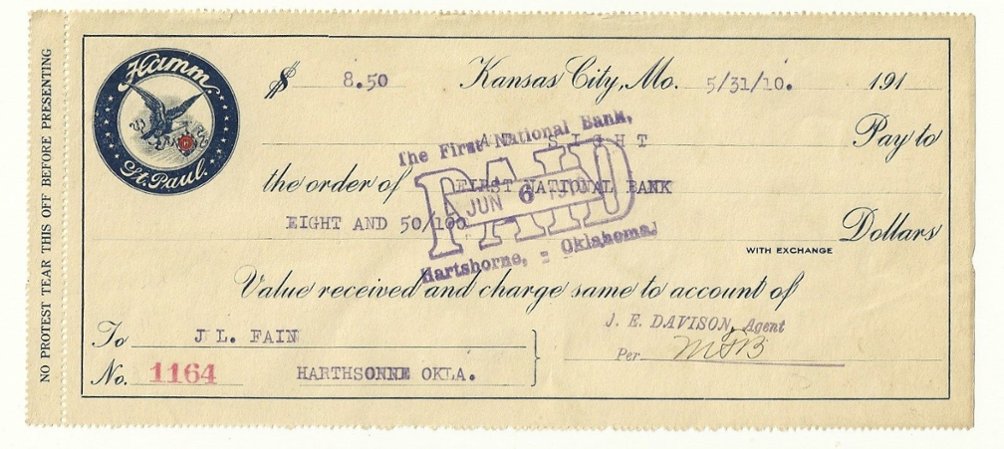 NO PROTEST TEAR THIS OFF BEFORE PRESENTING
Hamm.
St. Paul.
$ 8.50 Kansas City, Mo. 5/31/10. 191
AT SIGHT Pay to
the order of FIRST NATIONAL BANK
EIGHT AND 50/100 Dollars
WITH EXCHANGE
The First National Bank,
PAID
JUN 6
Hartshorne, - Oklahoma.
Value received and charge same to account of
J. E. DAVISON, Agent
To J L. FAIN
Per MFB
No. 1164 HARTHSONNE OKLA.